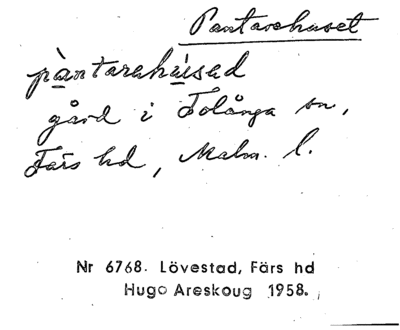 Pantarehuset
pàntarehúsed
gård i Tolånga sn,
Färs hd, Malm. l.
Nr 6768. Lövestad, Färs hd
Hugo Areskoug 1958.